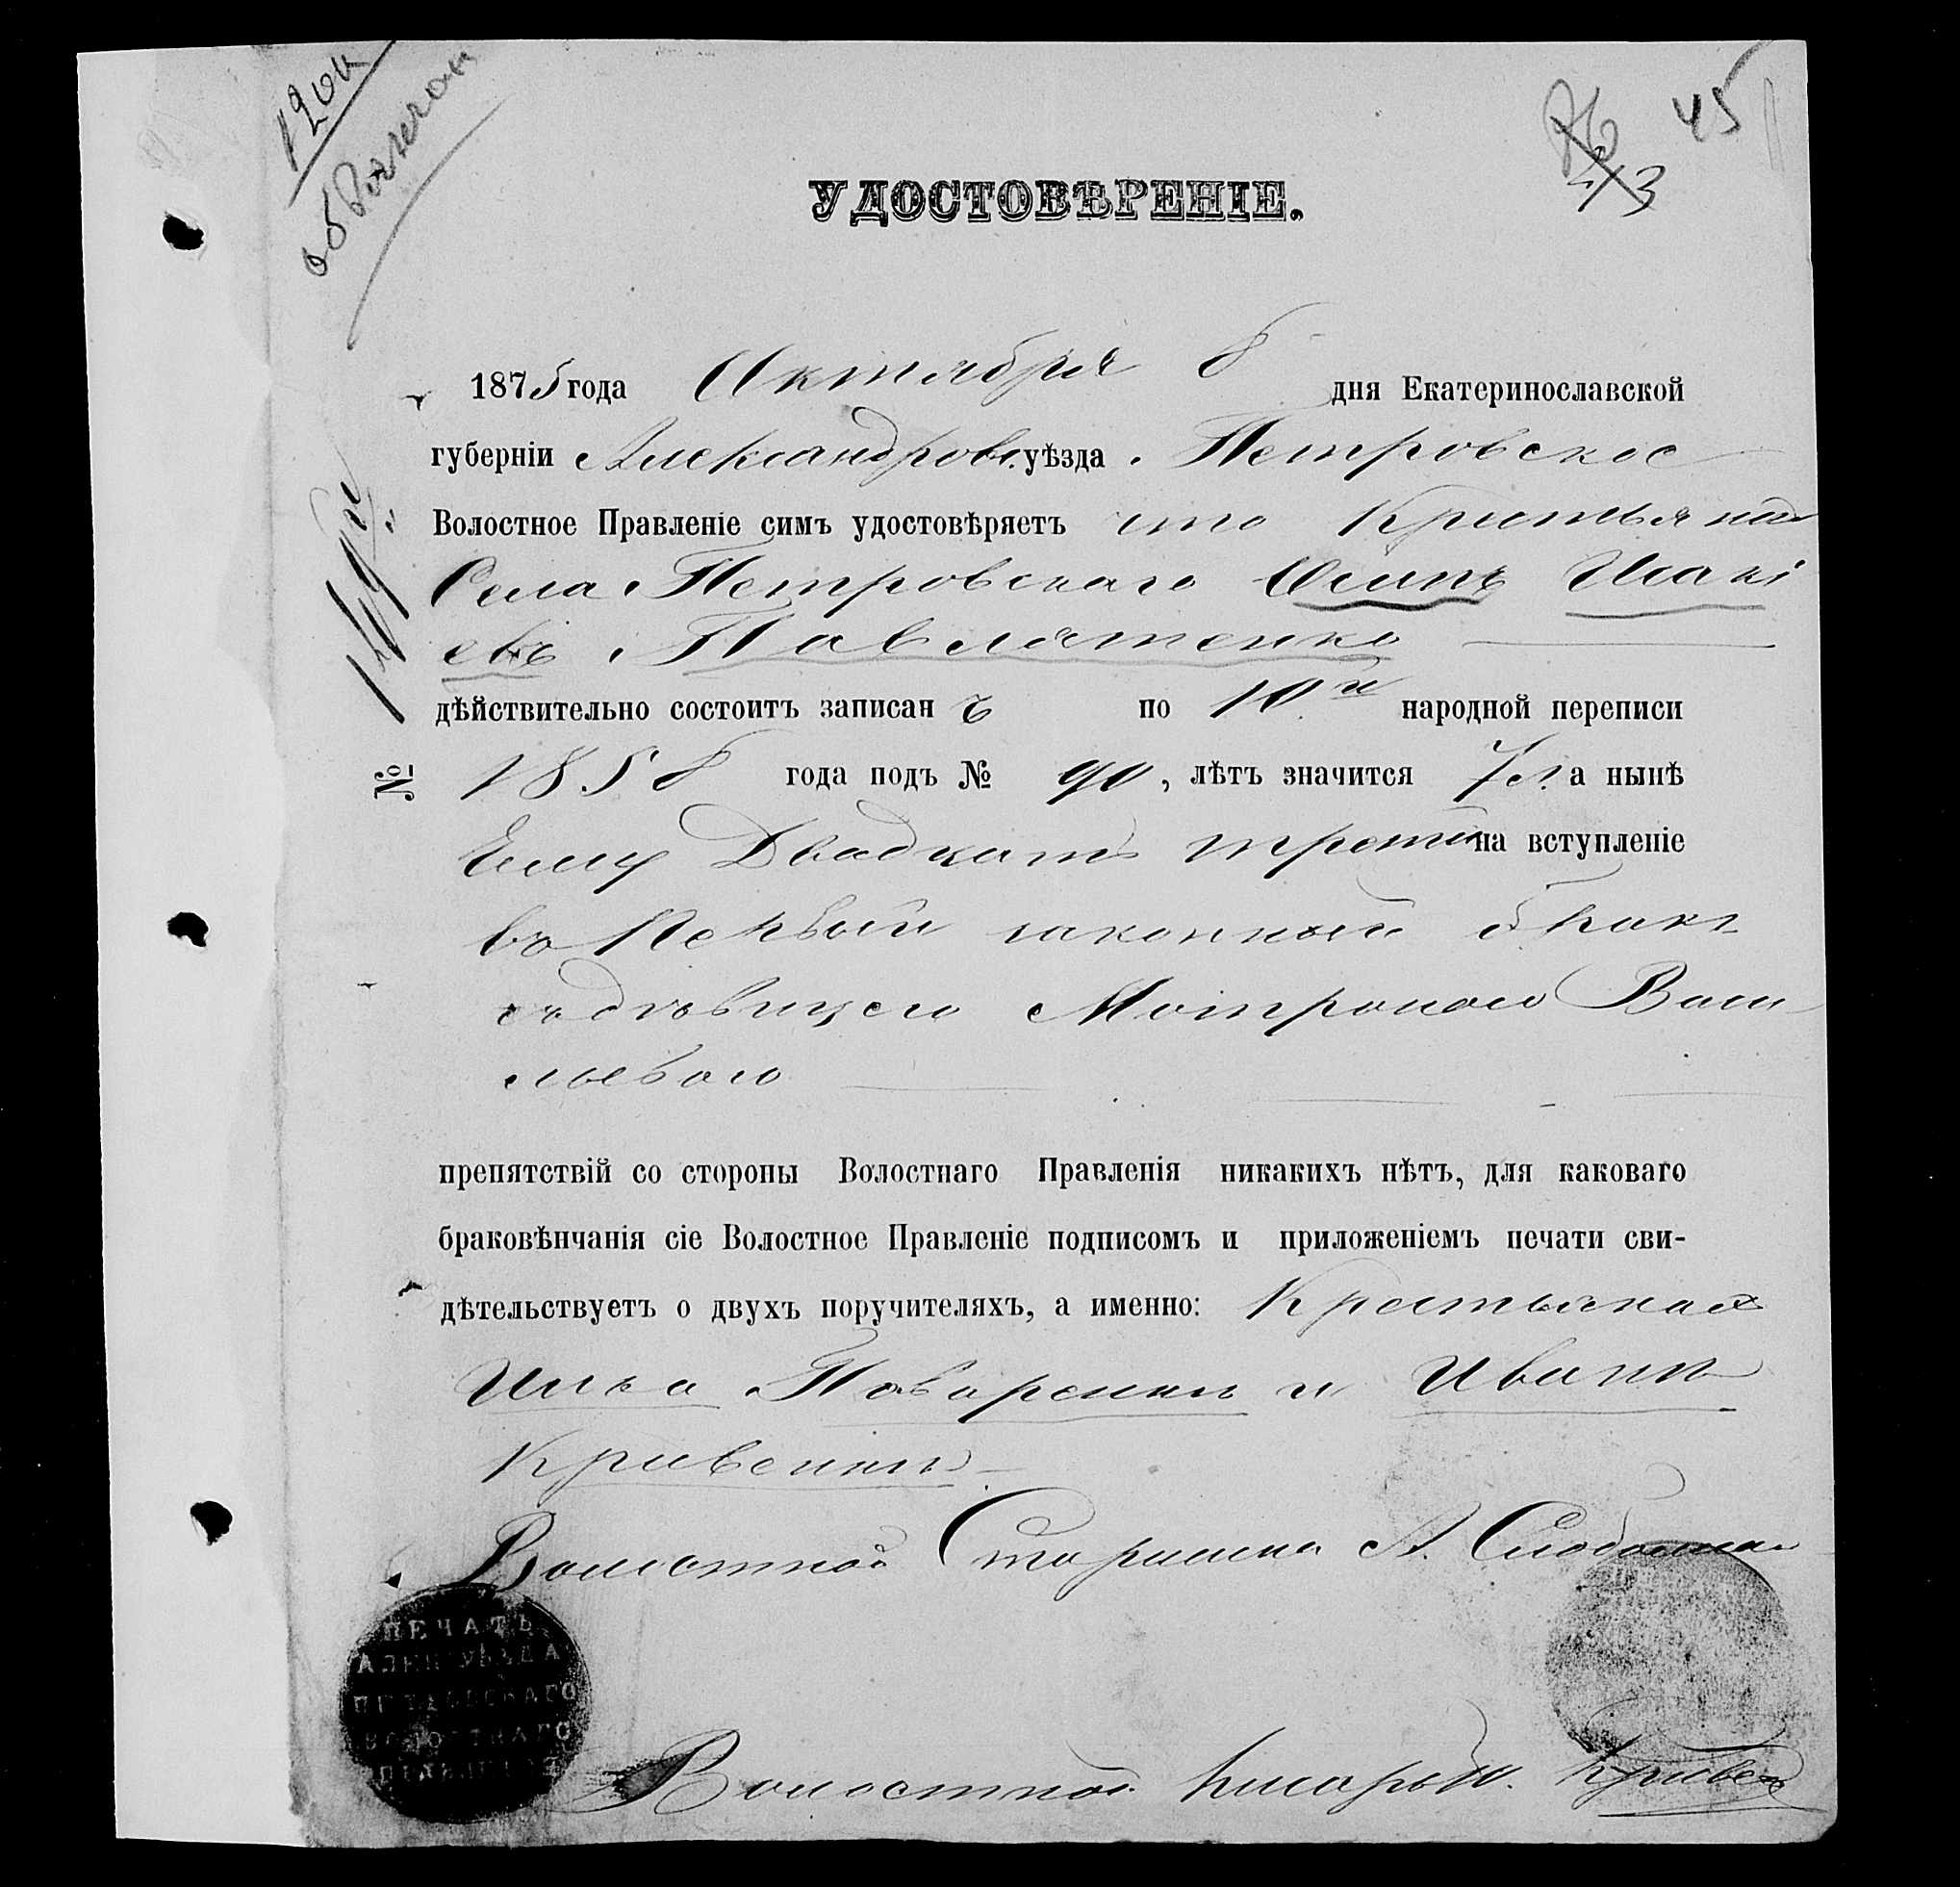 45
43
УДОСТОВѢРЕНІЕ.
1875 года Октября 8 дня Екатеринославской
губерніи Александровс. уѣзда Петровское
Волостное Правленіе симъ удостовѣряетъ что Крестьянинъ
Села Петровскаго Осипъ Исакі
евъ Павлятенко
дѣйствительно состоитъ записанъ по 10й народной переписи
№ 1858 года подъ № 90, лѣтъ значится 7 л. а нынѣ
Ему Двадцать третій на вступленіе
въ Первый законный бракъ
съ дѣвицею Матроною Васи
льевою
препятствій со стороны Волостнаго Правленія никакихъ нѣтъ, для каковаго
браковѣнчанія сіе Волостное Правленіе подписомъ и приложеніемъ печати сви-
дѣтельствуетъ о двухъ поручителяхъ, а именно: Крестьянах
Илька Поваренки и Иванъ
Кривенки
Волостной Старшина А.
ПЕЧАТЬ
АЛЕК УѢЗДА
ПЕТРОВСКАГО
ВОЛОСТНАГО
ПРАВЛЕНІЯ
Волостной писарь И.